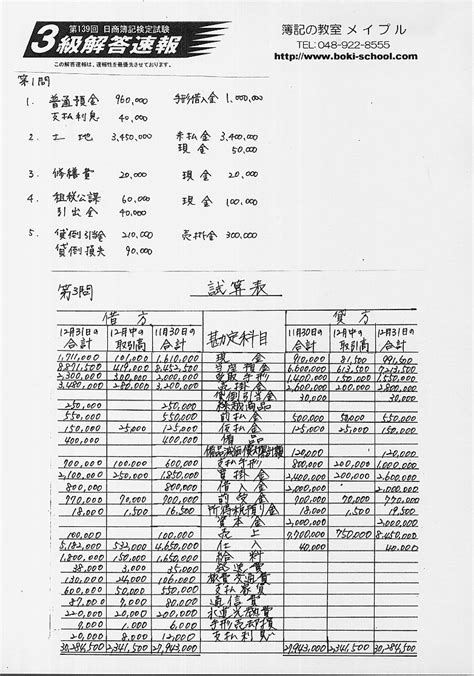 第139回 日商簿記検定試験
3級解答速報
この解答速報は、速報性を最優先させております。
簿記の教室 メイプル
TEL:048-922-8555
http://www.boki-school.com
第1問
1. 普通預金 960,000 手形借入金 1,000,000
支払利息 40,000
2. 土地 3,450,000 未払金 3,400,000
現金 50,000
3. 修繕費 20,000 現金 20,000
4. 租税公課 60,000 現金 100,000
引出金 40,000
5. 貸倒引当金 210,000 売掛金 300,000
貸倒損失 90,000
第3問 試算表
借方 貸方
12月31日の合計 12月中の取引高 11月30日の合計 勘定科目 11月30日の合計 12月中の取引高 12月31日の合計
1,711,000 101,000 1,610,000 現金 910,000 81,500 991,500
8,871,500 419,000 8,452,500 当座預金 6,600,000 613,500 7,213,500
2,300,000 300,000 2,000,000 受取手形 1,400,000 150,000 1,550,000
3,480,000 280,000 3,200,000 売掛金 2,600,000 200,000 2,800,000
貸倒引当金 30,000 30,000
250,000 250,000 繰越商品
550,000 550,000 前払金 500,000 50,000 550,000
150,000 25,000 125,000 仮払金 125,000 25,000 150,000
400,000 400,000 備品
備品減価償却累計額 120,000 120,000
700,000 100,000 600,000 支払手形 800,000 200,000 1,000,000
2,100,000 250,000 1,850,000 買掛金 2,400,000 200,000 2,600,000
800,000 800,000 借入金 2,000,000 2,000,000
770,000 70,000 700,000 前受金 700,000 70,000 770,000
18,000 1,500 16,500 所得税預り金 18,000 1,500 19,500
資本金 2,000,000 2,000,000
100,000 100,000 売上 7,700,000 750,000 8,450,000
5,182,000 532,000 4,650,000 仕入 40,000 40,000
給料
38,000 3,000 35,000 発送費
130,000 24,000 106,000 旅費交通費
600,000 50,000 550,000 支払家賃
87,000 7,000 80,000 通信費
220,000 20,000 200,000 水道光熱費
7,000 1,000 6,000 手形売却損
20,000 8,000 12,000 支払利息
30,284,500 2,341,500 27,943,000 27,943,000 2,341,500 30,284,500